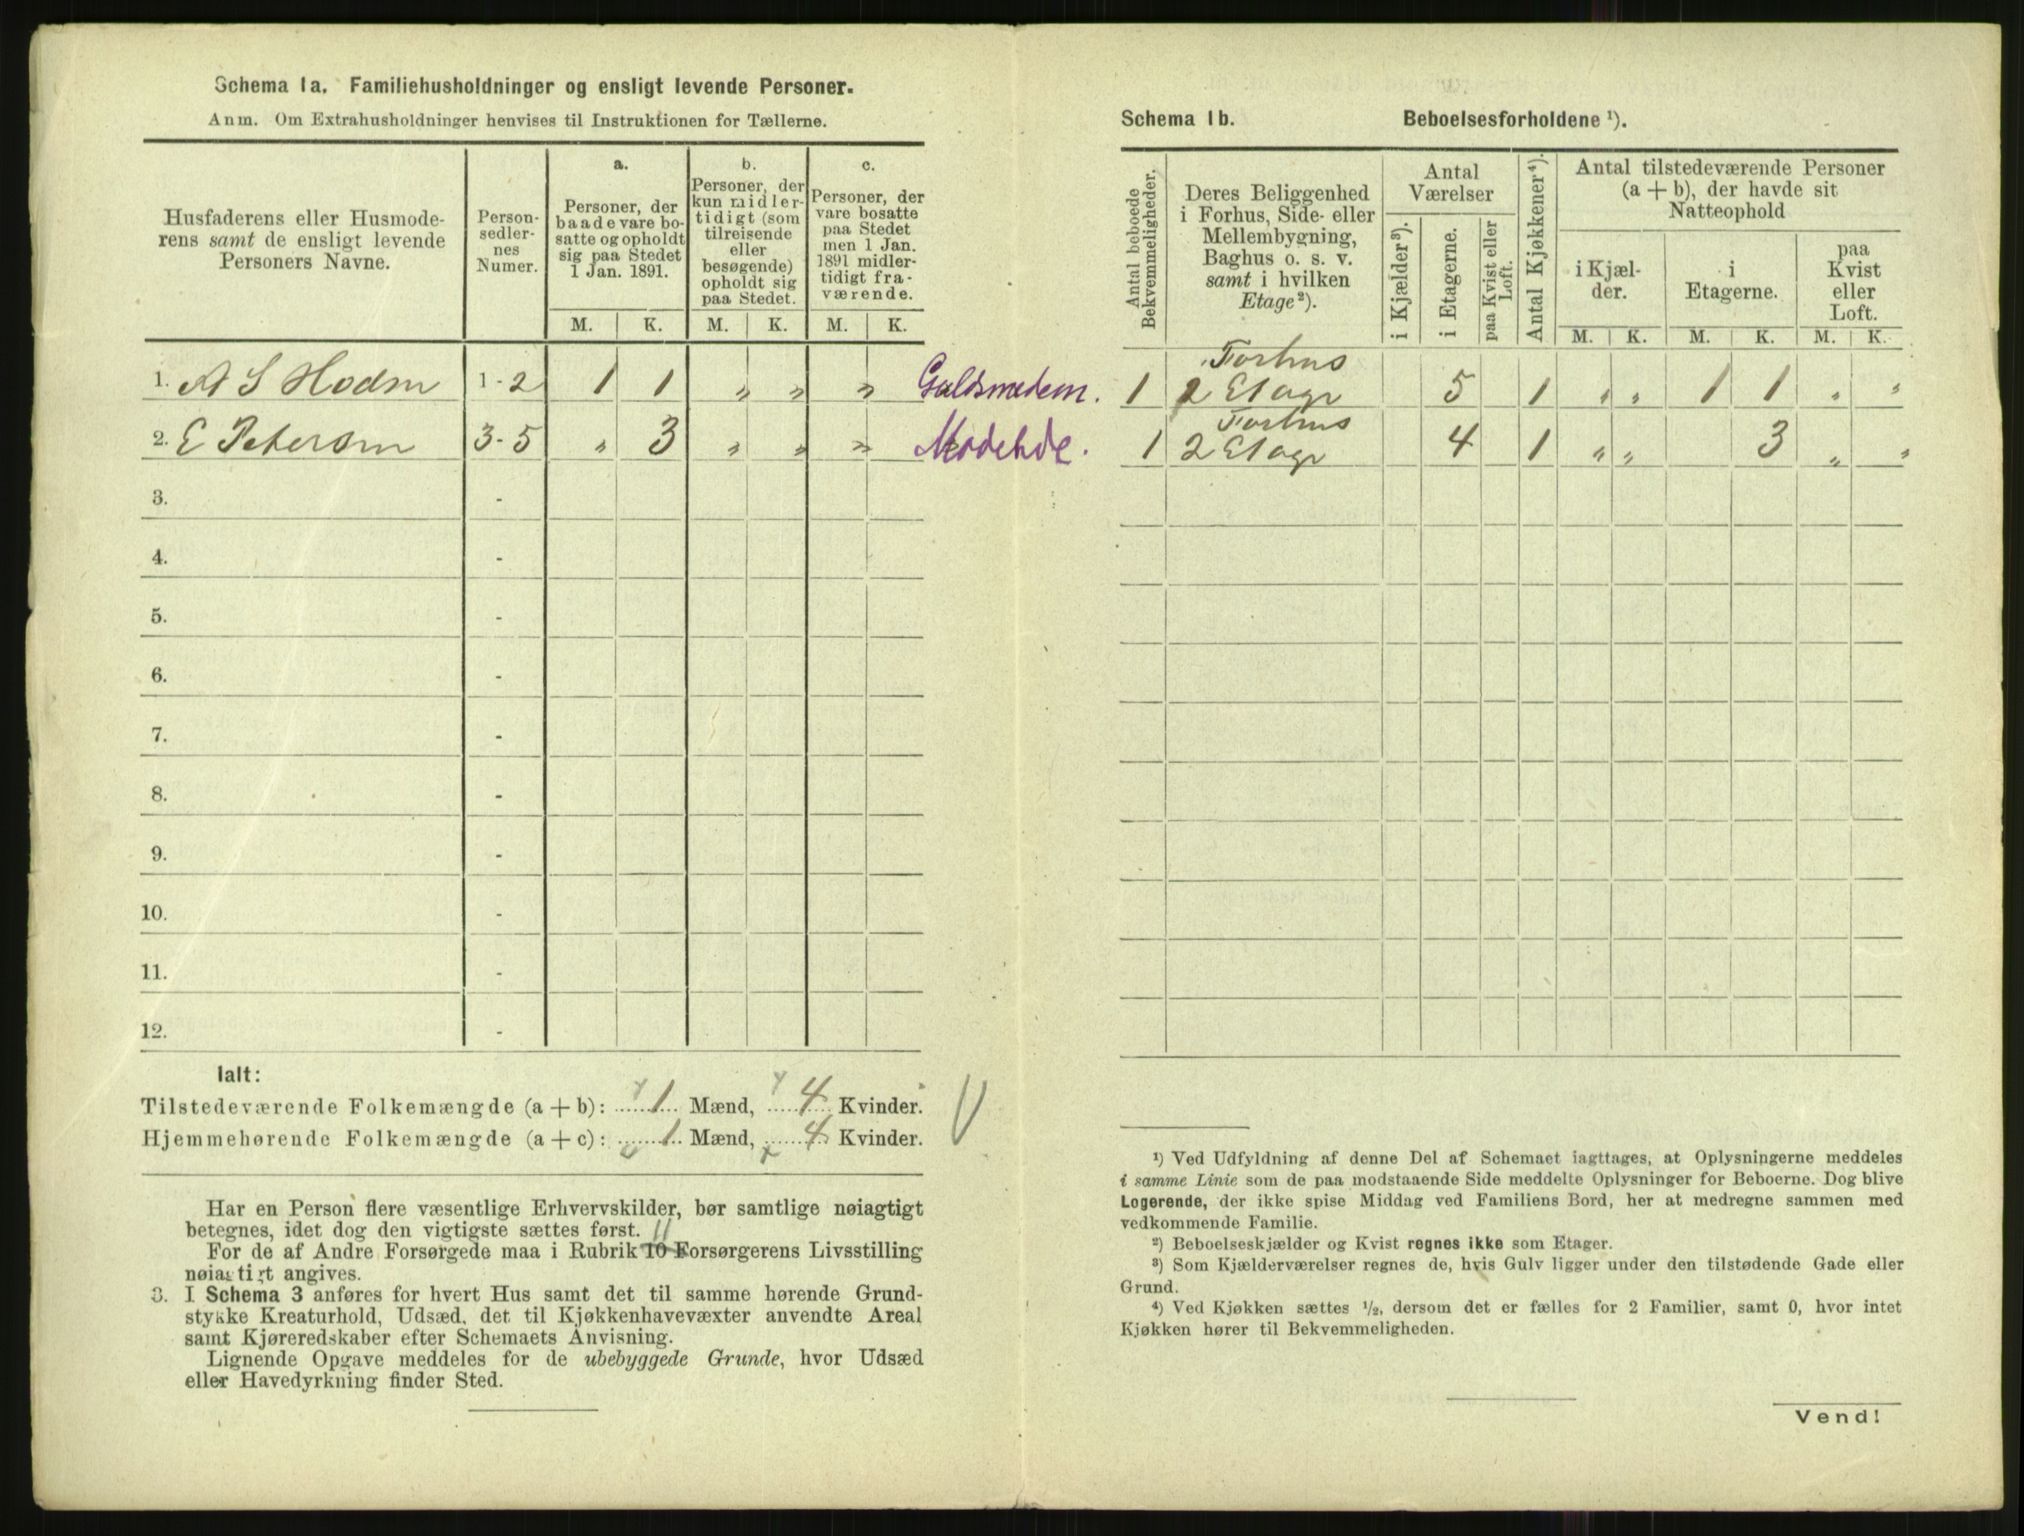 Schema 1a. Familiehusholdninger og ensligt levende Personer.
Anm. Om Extrahusholdninger henvises til Instruktionen for Tællerne.
Husfaderens eller Husmode-
rens samt de ensligt levende
Personers Navne.
Person-
sedler-
nes
Numer.
a.
Personer, der
baade vare bo-
satte og opholdt
sig paa Stedet
1 Jan. 1891.
b.
Personer, der
kun midler-
tidigt (som
tilreisende
eller
besøgende)
opholdt sig
paa Stedet.
c.
Personer, der
vare bosatte
paa Stedet
men 1 Jan.
1891 midler-
tidigt fra-
værende.
M. K. M. K. M. K.
1. A S 1-2 1 1 „ „ „
2. E Petersen 3-5 „ 3 „ „ „
3. -
4. -
5. -
6. -
7. -
8. -
9. -
10. -
11. -
12. -
Ialt:
Tilstedeværende Folkemængde (a + b): 1 Mænd, 4 Kvinder.
Hjemmehørende Folkemængde (a + c): 1 Mænd, 4 Kvinder.
Har en Person flere væsentlige Erhvervskilder, bør samtlige nøiagtigt
betegnes, idet dog den vigtigste sættes først.
11
For de af Andre Forsørgede maa i Rubrik 10 Forsørgerens Livsstilling
nøiagtigt angives.
3. I Schema 3 anføres for hvert Hus samt det til samme hørende Grund-
stykke Kreaturhold, Udsæd, det til Kjøkkenhavevæxter anvendte Areal
samt Kjøreredskaber efter Schemaets Anvisning.
Lignende Opgave meddeles for de ubebyggede Grunde, hvor Udsæd
eller Havedyrkning finder Sted.
Schema 1b. Beboelsesforholdene ¹).
Antal beboede
Bekvemmeligheder.
Deres Beliggenhed
i Forhus, Side- eller
Mellembygning,
Baghus o. s. v.
samt i hvilken
Etage ²).
Antal
Værelser
i Kjælder ³).
i Etagerne.
paa Kvist eller
Loft.
Antal Kjøkkener ⁴).
Antal tilstedeværende Personer
(a + b), der havde sit
Natteophold
i Kjæl-
der.
i
Etagerne.
paa
Kvist
eller
Loft.
M. K. M. K. M. K.
Guldsmedem. 1 Forhus
2 Etage 5 1 „ „ 1 1 „ „
1 Forhus
2 Etage 4 1 „ „ 3 „ „
¹) Ved Udfyldning af denne Del af Schemaet iagttages, at Oplysningerne meddeles
i samme Linie som de paa modstaaende Side meddelte Oplysninger for Beboerne. Dog blive
Logerende, der ikke spise Middag ved Familiens Bord, her at medregne sammen med
vedkommende Familie.
²) Beboelseskjælder og Kvist regnes ikke som Etager.
³) Som Kjælderværelser regnes de, hvis Gulv ligger under den tilstødende Gade eller
Grund.
⁴) Ved Kjøkken sættes ½, dersom det er fælles for 2 Familier, samt 0, hvor intet
Kjøkken hører til Bekvemmeligheden.
Vend!